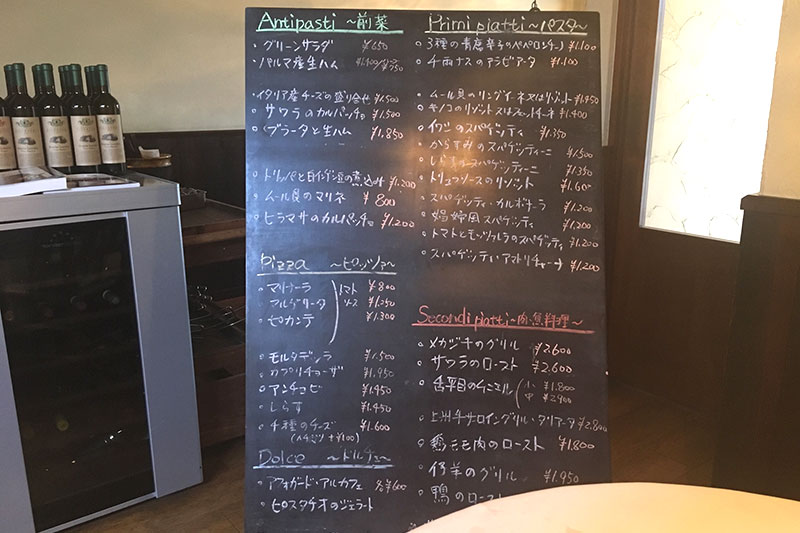 Antipasti ～前菜
・グリーンサラダ ¥650
・パルマ産生ハム
・イタリア産チーズの盛り合せ ¥1,500
・サワラのカルパッチョ ¥1,500
・ブラータと生ハム ¥1,850
・トリッパと白インゲン豆の煮込み ¥1,200
・ムール貝のマリネ ¥800
・ヒラマサのカルパッチョ ¥1,200
Pizza ～ピッツァ～
・マリナーラ ¥800
・マルゲリータ ¥1,250
・ピカンテ ¥1,300
トマトソース
・モルタデッラ ¥1,500
・カプリチョーザ ¥1,950
・アンチョビ ¥1,450
・しらす ¥1,450
・4種のチーズ ¥1,600
(ハチミツ +¥100)
Dolce ～ドルチェ～
・アフォガード・アルカフェ ¥600
・ピスタチオのジェラート
Primi piatti～パスタ～
・3種の青唐辛子のペペロンチーノ ¥1,100
・千両ナスのアラビアータ ¥1,100
・ムール貝のリングイーネ又はリゾット ¥1,950
・キノコのリゾット又はフェットチーネ ¥1,400
・イワシのスパゲッティ ¥1,350
・からすみのスパゲッティーニ ¥1,500
・しらすのスパゲッティーニ ¥1,350
・トリュフソースのリゾット ¥1,600
・スパゲッティ・カルボナーラ ¥1,200
・娼婦風スパゲッティ ¥1,200
・トマトとモッツァレラのスパゲッティ ¥1,200
・スパゲッティ・アマトリチャーナ ¥1,200
Secondi piatti～肉・魚料理～
・メカジキのグリル ¥2,600
・サワラのロースト ¥2,600
・舌平目のムニエル 小 ¥1,800
中 ¥2,400
・上州牛サーロイングリル・タリアータ ¥2,800
・鶏モモ肉のロースト ¥1,800
・仔羊のグリル ¥1,950
・鴨のロースト